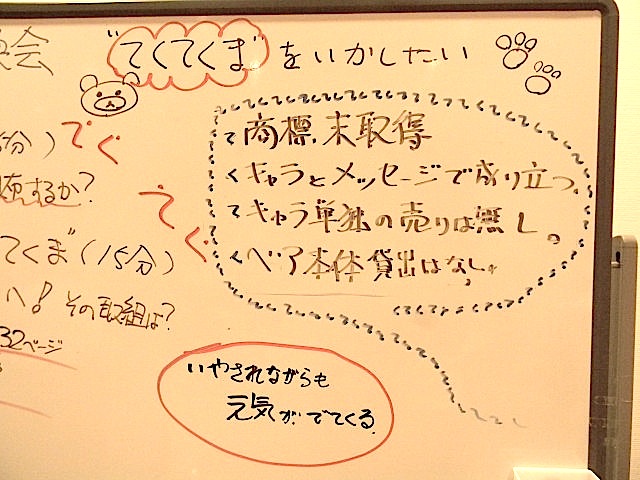 会
"てくてくま"をいかしたい
分)
てく
するか?
てく
てくま"(15分)
へ! その取組は?
32ページ
てくてく
商標 未取得
キャラとメッセージで成り立つ。
キャラ単独の売りは無し。
ベア本体貸出はなし。
いやされながらも
元気がでてくる